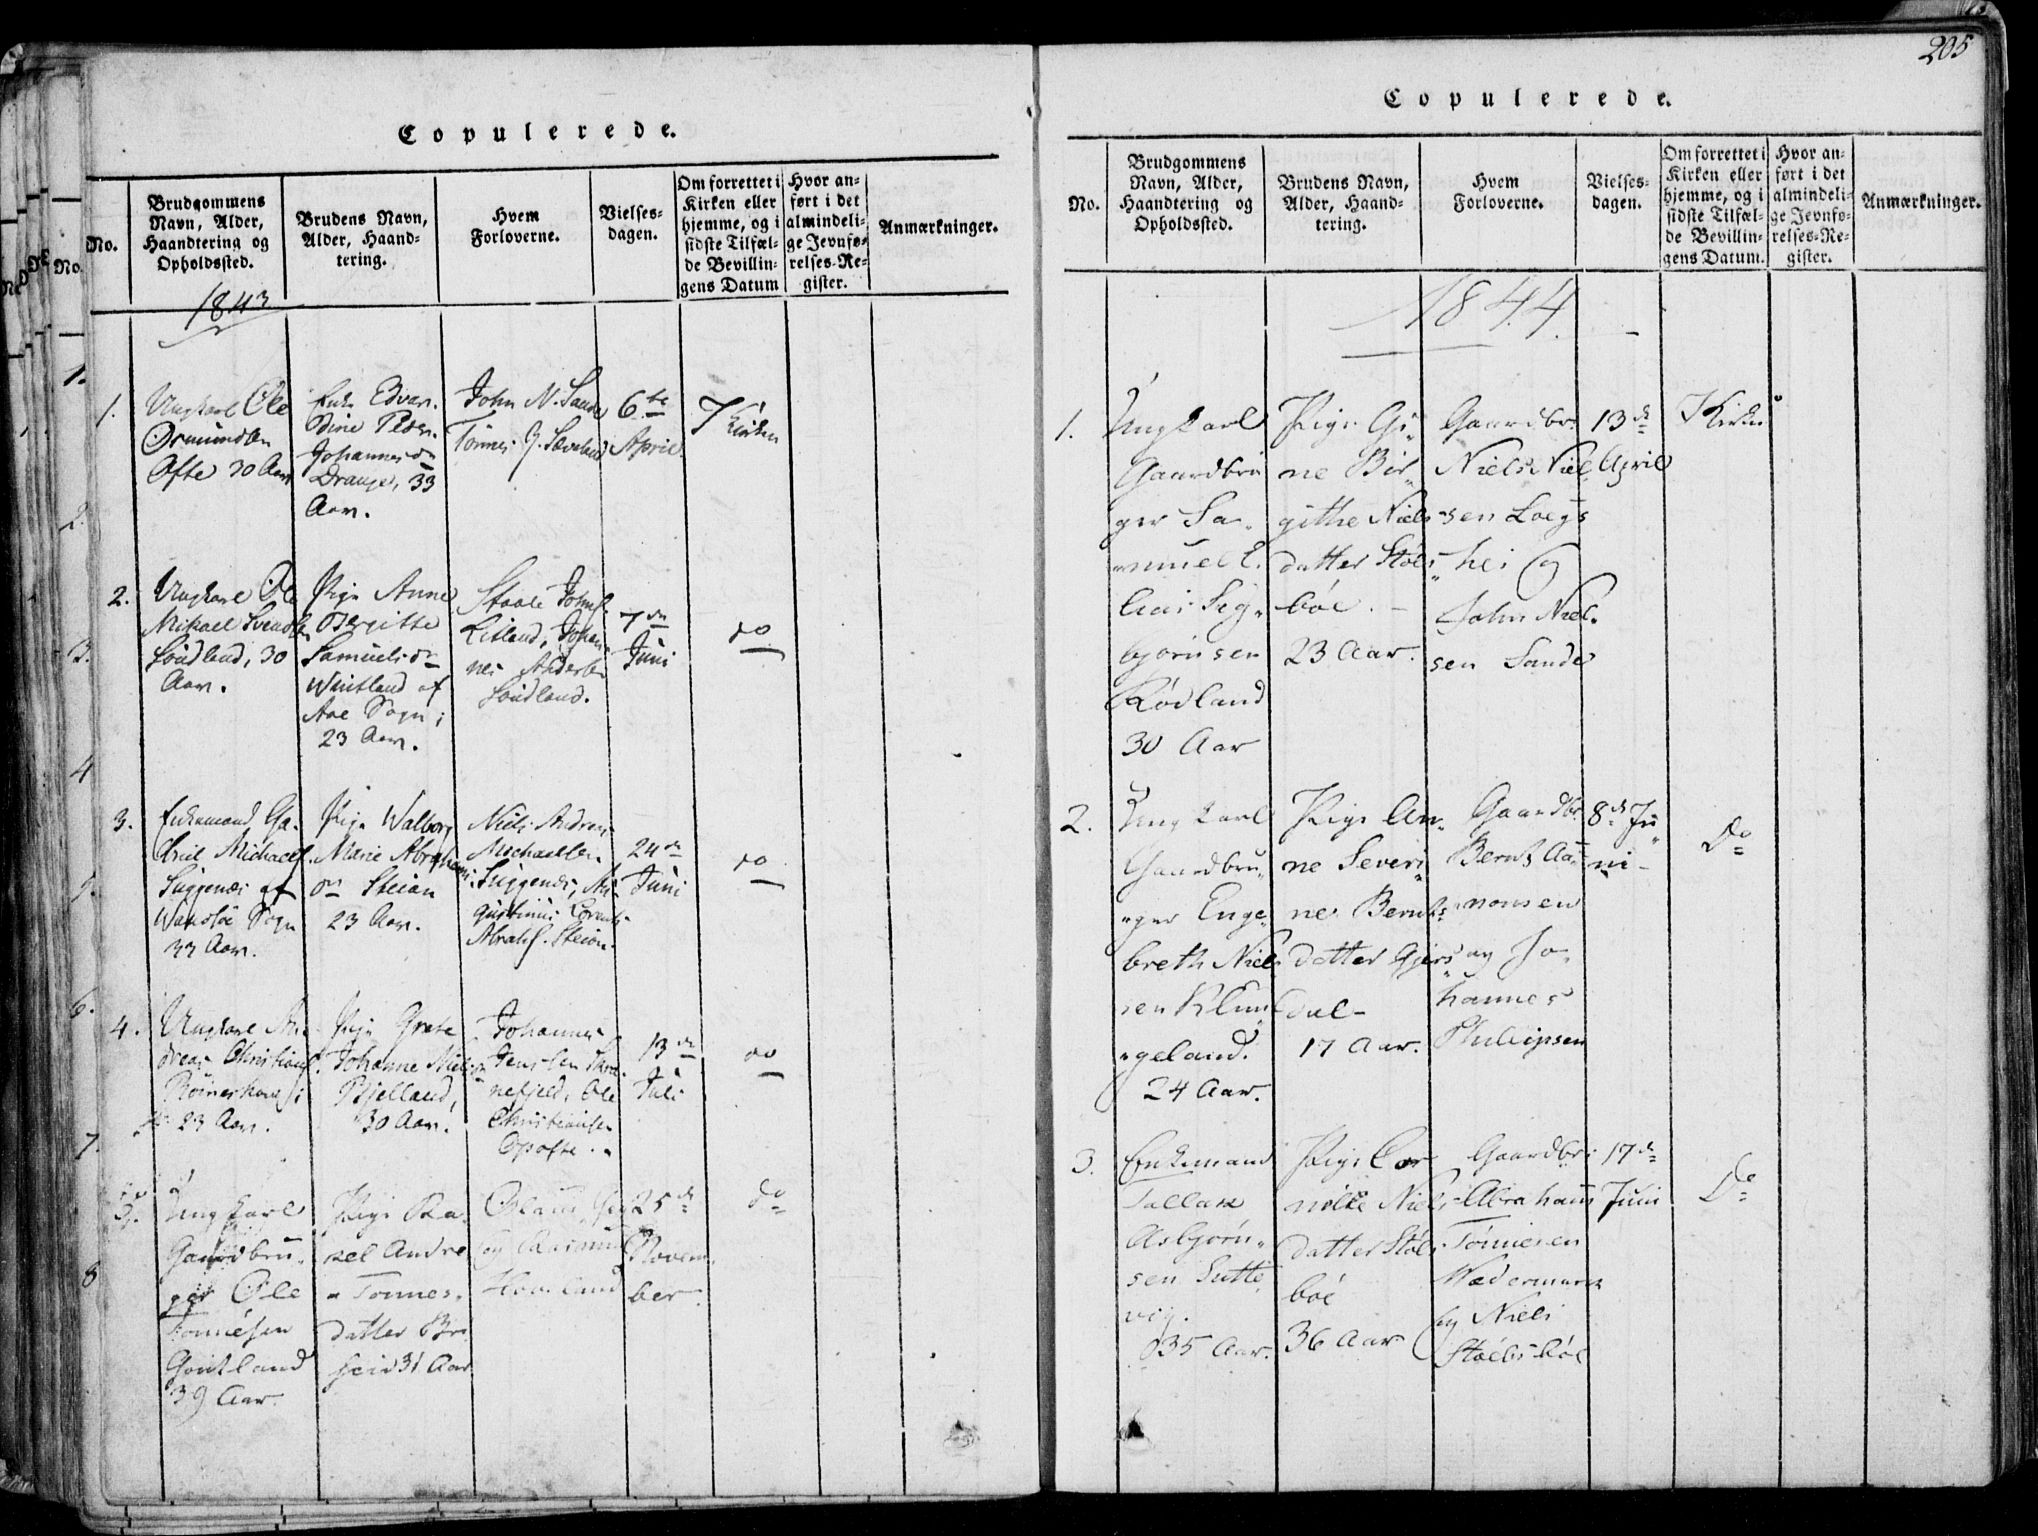 205
Copulerede.
No.
Brudgommens
Navn, Alder,
Haandtering og
Opholdssted.
Brudens Navn,
Alder, Haand-
tering.
Hvem
Forloverne.
Vielses-
dagen.
Om forrettet i
Kirken eller
hjemme, og i
sidste Tilfæl-
de Bevillin-
gens Datum
Hvor an-
ført i det
almindeli-
ge Jevnfø-
relses-Re-
gister.
Anmærkninger.
1843
1.
Ungkarl Ole
Osmundsen
Ofte 30 Aar
Enke Edvar-
dine Peder
Johannesdr
Drange, 33
Aar.
John N. Sande
Tønnes G. Sæveland
6te
April
I Kirken
2.
Ungkarl Ole
Mikael Svends.
Loudland, 30
Aar.
Pige Anne
Bergitte
Samuelsdr
Wintland af
Aae Sogn,
23 Aar.
Staale Johns.
Litland, Johan-
nes Anders.
Loudland.
7de
Juni
do
3.
Enkemand Ga-
briel Michaels.
Siggenæs af
Wansøe Sogn
33 Aar.
Pige Walborg
Marie Abrahams-
dr Steian
23 Aar.
Niels Andreas
Michaelsen
Siggenæs, Au-
gustinus Lorents
Abrahs. Steian.
24de
Juni
do
4.
Ungkarl An-
dreas Christians.
23 Aar.
Pige Grete
Johanne Nielsdr
Bjelland,
30 Aar.
Johannes
Jenssen
nefjeld, Ole
Christiansen
Opofte.
13de
Juli
do
5.
Ungkarl
Gaardbru-
ger Ole
Tønnesen
Gouland
39 Aar.
Pige Ra-
kel Andre
a Tønnes-
datter Bri
seid 31 Aar
og Rasmus
Hovland
25de
Novem-
ber
do
Copulerede.
No.
Brudgommens
Navn, Alder,
Haandtering og
Opholdssted.
Brudens Navn,
Alder, Haand-
tering.
Hvem
Forloverne.
Vielses-
dagen.
Om forrettet i
Kirken eller
hjemme, og i
sidste Tilfæl-
de Bevillin-
gens Datum.
Hvor an-
ført i det
almindeli-
ge Jevnfø-
relses-Re-
gister.
Anmærkninger.
1844
1.
Ungkarl
Gaardbru
ger Sa-
muel E-
lias Sig-
bjørnsen
Rødland
30 Aar
Pige Gu-
ne Bir-
githe Niels
datter Støls
bøe.
23 Aar.
Gaardbr:
Niels Niel-
sen Loegs
hei og
John Niel-
sen Sande
13de
April
Kirken
2.
Ungkarl
Gaardbru-
ger Enge-
breth Niel-
sen Klun-
geland.
24 Aar.
Pige An-
ne Severi-
ne Bernts-
datter Gjers
dal
17 Aar.
Gaardbr.
Bernt Aa-
nonsen
og Jo-
hannes
Philipsen
8de Ju-
ni
Do
3.
Enkemand
Tallak
Asbjørn-
sen Lutte
vig.
35 Aar.
Pige Cor
nolie Niels
datter Støls
bøe
36 Aar
Gaardbr:
Abraham
Tønnesen
Wedermark
og Niels
Støelsbøe
17de
Juni
Do